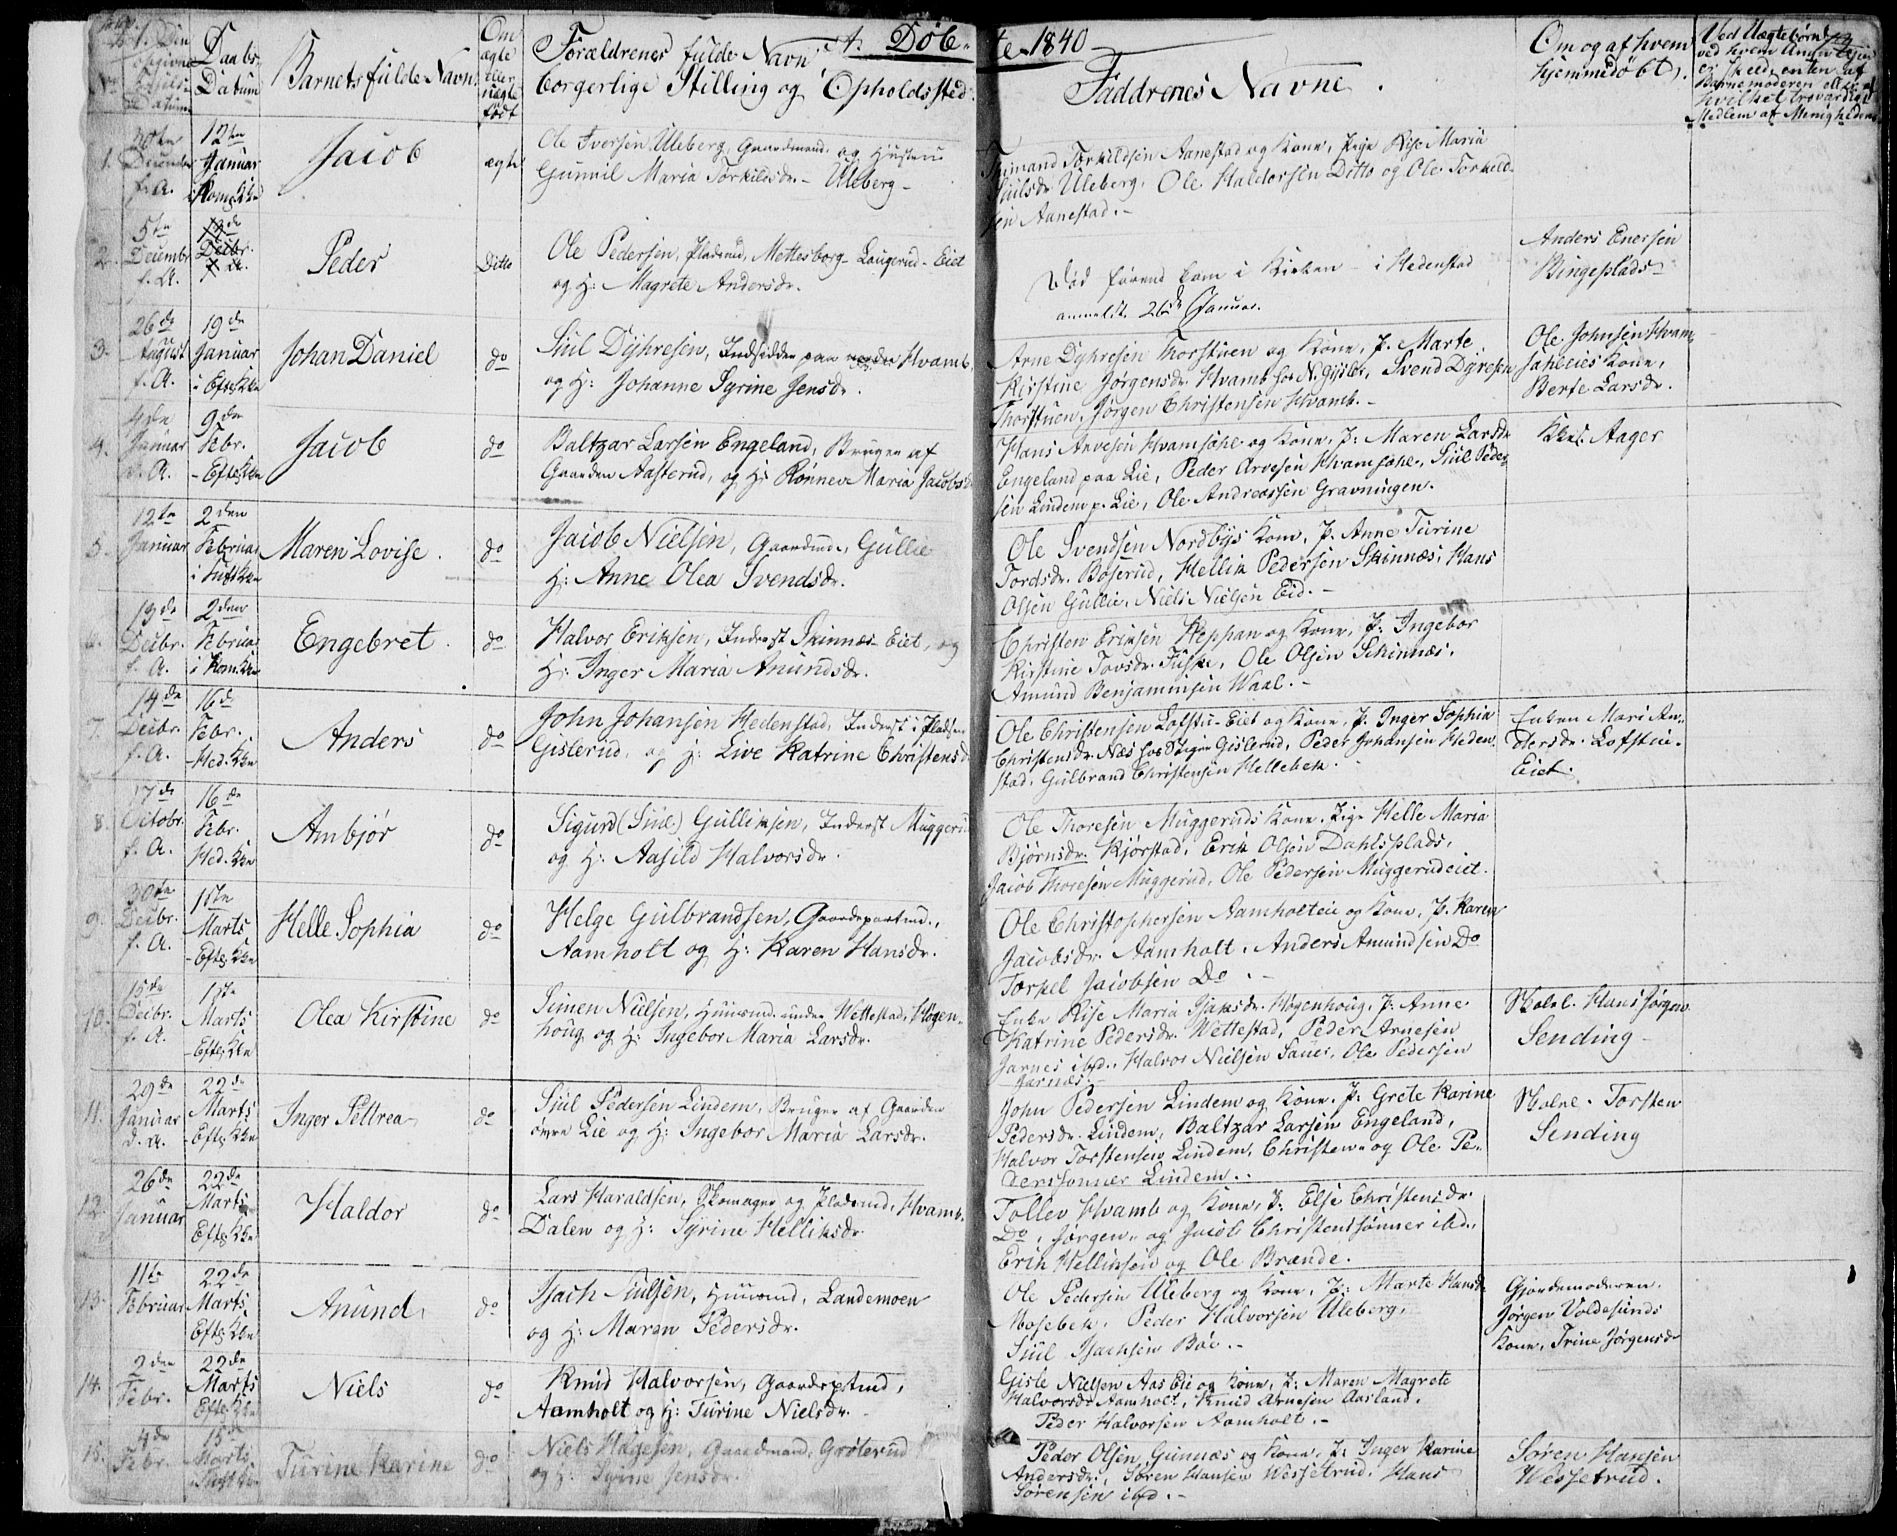 A. Døbte 1840
No
Daabs-
Datum
Barnets fulde Navn
Om
ægte
eller
uægte
født
Forældrenes fulde Navn
borgerlige Stilling og Opholdssted.
Faddrenes Navne.
Om og af hvem
hjemmedøbt.
1.
12te
Januar
Jacob
ægte
Ole Iversen Uleberg, Gaardmand og Hustrue
Gunnil Maria Torkildsdr. Uleberg
Aanestad og Kone, Pige Rise Maria
Siulsdr. Uleberg, Ole Haldorsen Ditto og Ole Torkild-
sen Aanestad.
2.
5te
Decembr.
f. A.
Peder
Ditto
Ole Pedersen, Pladsmd, Mettesborg-Laugerud-Eiet
og H: Magrete Andersdr.
Død førend kom i Kirken i Hedenstad
anmeldt 26de Januar.
Anders Enersen
Bingeplads
3.
26de
August
f. A.
19de
Januar
i Eft. Kken
Johan Daniel
do
Siul Dyhresen, Indsidder paa nordre Hvamb
og H: Johanne Syrine Jensdr.
Arne Dyhresen Thorstuen og Kone, P. Marte
Kirstine Jørgensdr. Hvamb, Svend Dyresen
Thorstuen, Jørgen Christensen Hvamb.
Ole Johnsen Hvam
Kone,
Berte Larsdr.
4.
4de
Januar
9den
Febr.
Jacob
do
Baltzar Larsen Engeland, Bruger af
Gaarden Aasterud, og H: Rønnev Maria Jacobsd.
Hans Arvesen og Kone, P: Maren Larsdr
Engeland paa Lie, Peder Arvesen, Siul Peder-
sen Lindem p. Lie, Ole Andreassen Gravningen.
Aager
5.
12te
Januar
2den
Februar
Maren Lovise
do
Jacob Nielsen, Gaardmd., Gullie
H: Anne Olea Svendsdr.
Ole Svendsen Nordbys Kone, P. Anne Turine
Tordsdr. Boserud, Hellik Pedersen Skinnæs, Hans
Olsen Gullie, Niels Nielsen Eid.
6.
19de
Decbr.
f. A.
2den
Februar
Engebret
do
Halvor Eriksen, Inderst Skinnæs-Eiet, og
H: Inger Maria Amundsdr.
Christen Eriksen Heppan og Kone, P: Ingebor
Kirstine Tovsdr., Ole Olsen Skinnæs,
Amund Benjaminsen Waal.
7.
14de
Decbr.
f. A.
16de
Febr.
Hed. Kken
Anders
do
John Johansen Hedenstad, Inderst i Pladsen
Gislerud, og H: Live Katrine Christensd.
Ole Christensen Lofstu-Eiet og Kone, P. Inger Sophia
Christensdr. Næs, Gislerud, Peder Johansen Heden-
stad, Gulbrand Christensen Hellebek.
Enken Mari An-
dersdr. Lofstue-
Eiet.
8.
17de
Octobr.
f. A.
16de
Febr.
Hed. Kken
Ambjør
do
Sigurd (Siul) Gulliksen, Inderst Muggerud
og H: Aasild Halvorsdr.
Ole Thoresen Muggeruds Kone, Pige Helle Maria
Bjørnsdr. Kjørstad, Erik Olsen Dahlsplads,
Jacob Thoresen Muggerud, Ole Pedersen Muggerudeiet.
9.
30te
Decbr.
f. A.
1ste
Marts
Eft. Kken
Helle Sophia
do
Helge Gulbrandsen, Gaardepartmd.,
Aamholt og H: Karen Hansdr.
Ole Christophersen Aamholteie og Kone, P. Karen
Jacobsdr. Aamholt. Anders Amundsen Do
Torkel Jacobsen Do.
10.
15de
Decbr.
f. A.
1ste
Marts
Eft. Kken
Olea Kirstine
do
Simen Nielsen, Huusmd. under Wettestad, Høgen-
houg og H: Ingebor Maria Larsdr.
Enke Rise Maria Isaksdr. Høgenhoug, P. Anne
Katrine Pedersdr. Wettestad, Peder Arnesen
Jarnes ibd., Halvor Nielsen Sauer, Ole Pedersen
Jarnæs.
Skolel. Hans Jørgen
Sending
11.
29de
Januar
22de
Marts
Eft. Kken
Inger Pettrea
do
Siul Pedersen Lindem, Bruger af Gaarden
øvre Lie og H: Ingebor Maria Larsdr.
John Pedersen Lindem og Kone, P: Grete Karine
Pedersdr. Lindem, Baltzar Larsen Engeland,
Halvor Torstensen Lindem, Christen- og Ole Pe-
dersønner Lindem.
Skolel. Torsten
Sending
12.
26de
Januar
22de
Marts
Eft. Kken
Haldor
do
Lars Haraldsen, Skomager og Pladsmd, Hvamb-
Dalen og H: Syrine Helliksdr.
Tollev Hvamb og Kone, P: Else Christensdr.
Do, Jørgen- og Jacob Christenssønner ibd.,
Erik Helliksen og Ole Brænde.
13.
11te
Februar
22de
Marts
Eft. Kken
Anund
do
Isach Siulsen, Huusmd, Landemoen
og H: Maren Pedersdr.
Ole Pedersen Uleberg og Kone, P: Marte Hansdr
Mosebek, Peder Halvorsen Uleberg,
Siul Isachsen Bøe.
Gjordemoderen,
Jørgen Voldesunds
Kone, Trine Jørgensdr
14.
2den
Febr.
22de
Marts
Eft. Kken
Niels
do
Knud Halvorsen, Gaardeptmd,
Aamholt og H: Turine Nielsdr.
Gisle Nielsen Aas Eie og Kone, P: Maren Magrete
Halvorsdr Aamholt, Knud Arnesen Aasland,
Peder Halvorsen Aamholt.
15.
4de
Febr.
15de
Marts
Turine Karine
do
Niels Hagesen, Gaardmand, Grøterud
og H: Syrine Jensdr.
Peder Olsen Gunnæs og Kone, P: Inger Karine
Andersdr., Søren Hansen Wessetrud, Hans
Sørensen ibd.
Søren Hansen
Wessetrud.